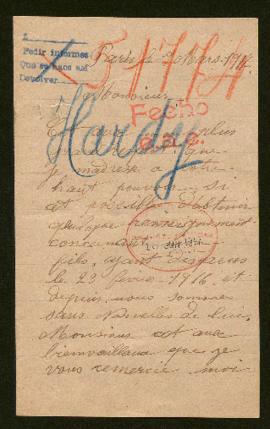 Pedir informes
Que se haos así
Devolver
Paris le 2 Mars 1917
51774
Monsieur
Fecho
Hardy
plus
grand
Je m'adresse a votre
haut pouvoir, si
est possible d'obtenir
quelque renseignement
concernant
fils, ayant disparus
le 23 fevrier 1916, et
depuis nous sommes
sans nouvelles de lui,
Monsieur est avec
bienveillance que je
vous remercie moi